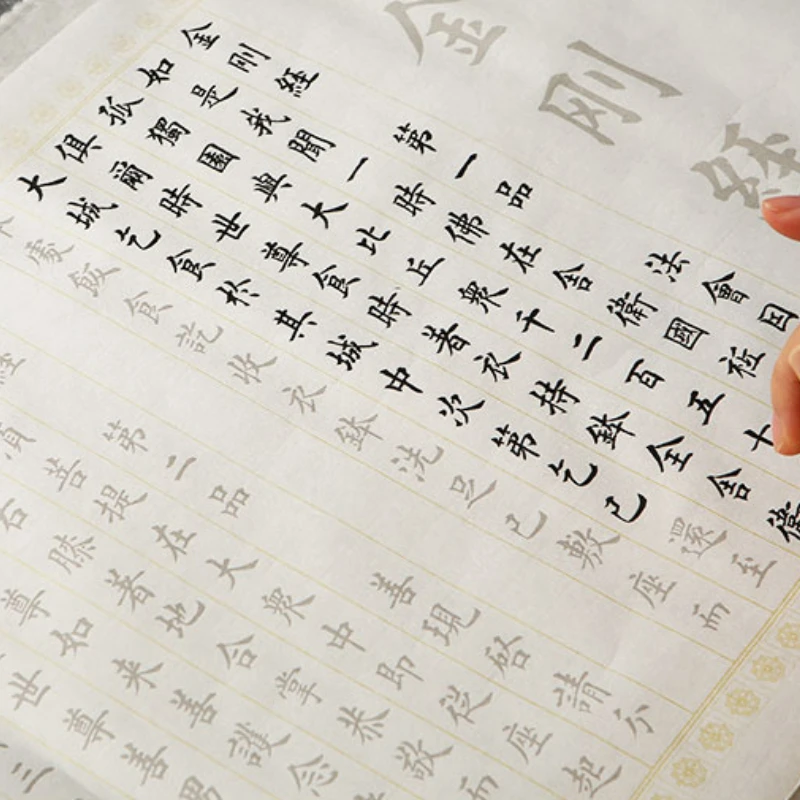 金剛
金剛經 第一品 法會因
如是我聞一時佛在舍衛國祗
孤獨園與大比丘衆千二百五十
俱爾時世尊食時著衣持鉢全舍衛
大城乞食於其城中次第乞已還至
本處飯食訖收衣鉢洗足已敷座而
經 第二品 善現啓請分
須菩提在大衆中即從座起
右膝著地合掌恭敬而
尊如来善護念
世尊善男
三